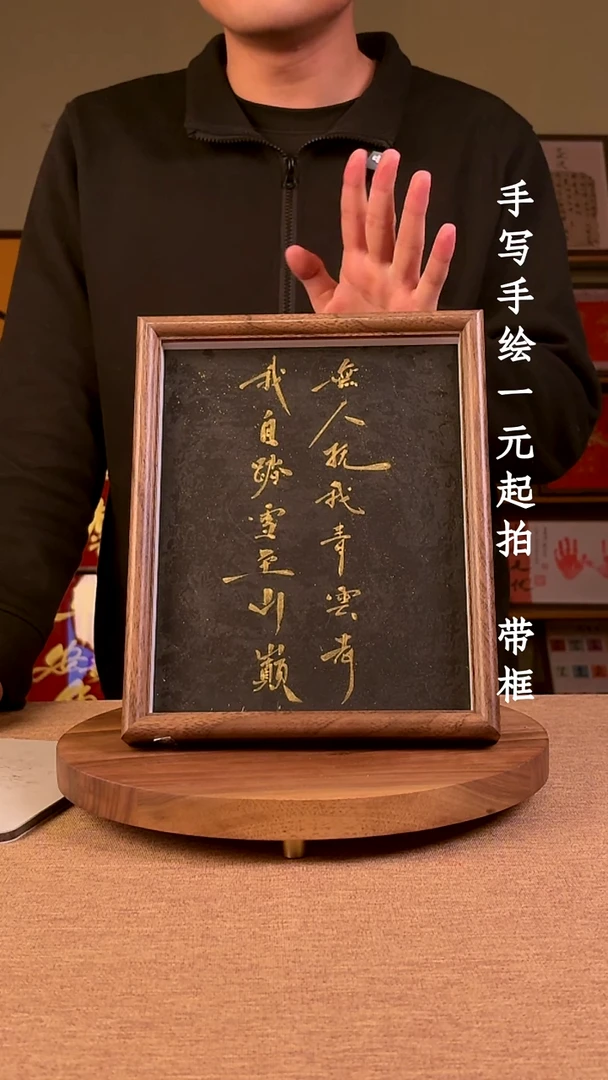 無人扶我青雲志
我自踏雪至山巔
手写手绘一元起拍 带框